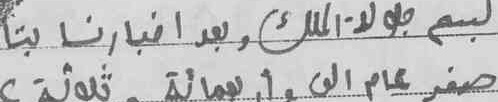 لبسم جلولة الملك وبعد اخبارنا بتا
صفر عام الف وأربعمائة وثلاثة